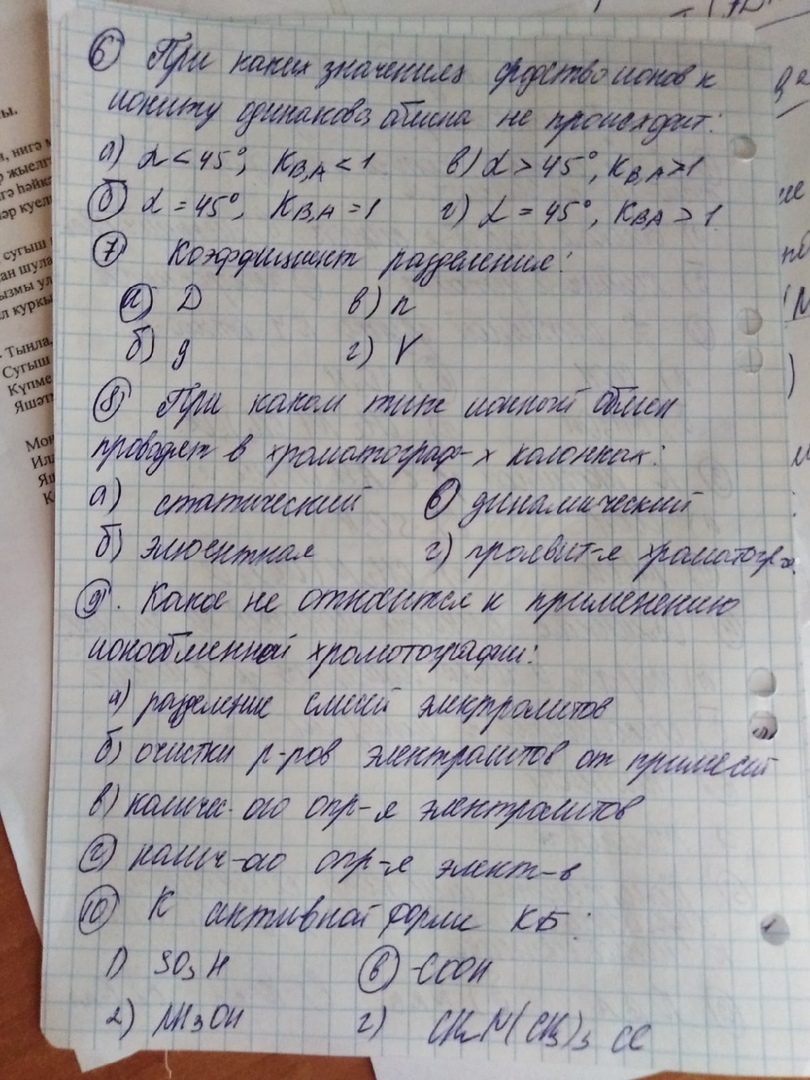 6) При каких значениях сродство ионов к
иониту одинаково, обмена не происходит:
а) α < 45°, K B,A < 1 в) α > 45°, K B,A > 1
б) α = 45°, K B,A = 1 г) α = 45°, K B,A > 1
7) Коэффициент разделения:
а) D в) n
б) g г) V
8) При каком типе ионный обмен
проводят в хроматограф-х колонках:
а) статический в) динамический
б) элюентная г) проявит-я хроматогр-я
9. Какое не относится к применению
ионообменной хромотографии:
а) разделение смесей электролитов
б) очистки р-ров электролитов от примесей
в) количес-ого опр-я электролитов
г) опр-я элект-в
10) К активной форме КБ:
1) SO3H в) -COOH
2) NH3OH г) CH2N(CH3)3 Cl
ы.
Тынла,
Сугыш
Күпме
Яшәт